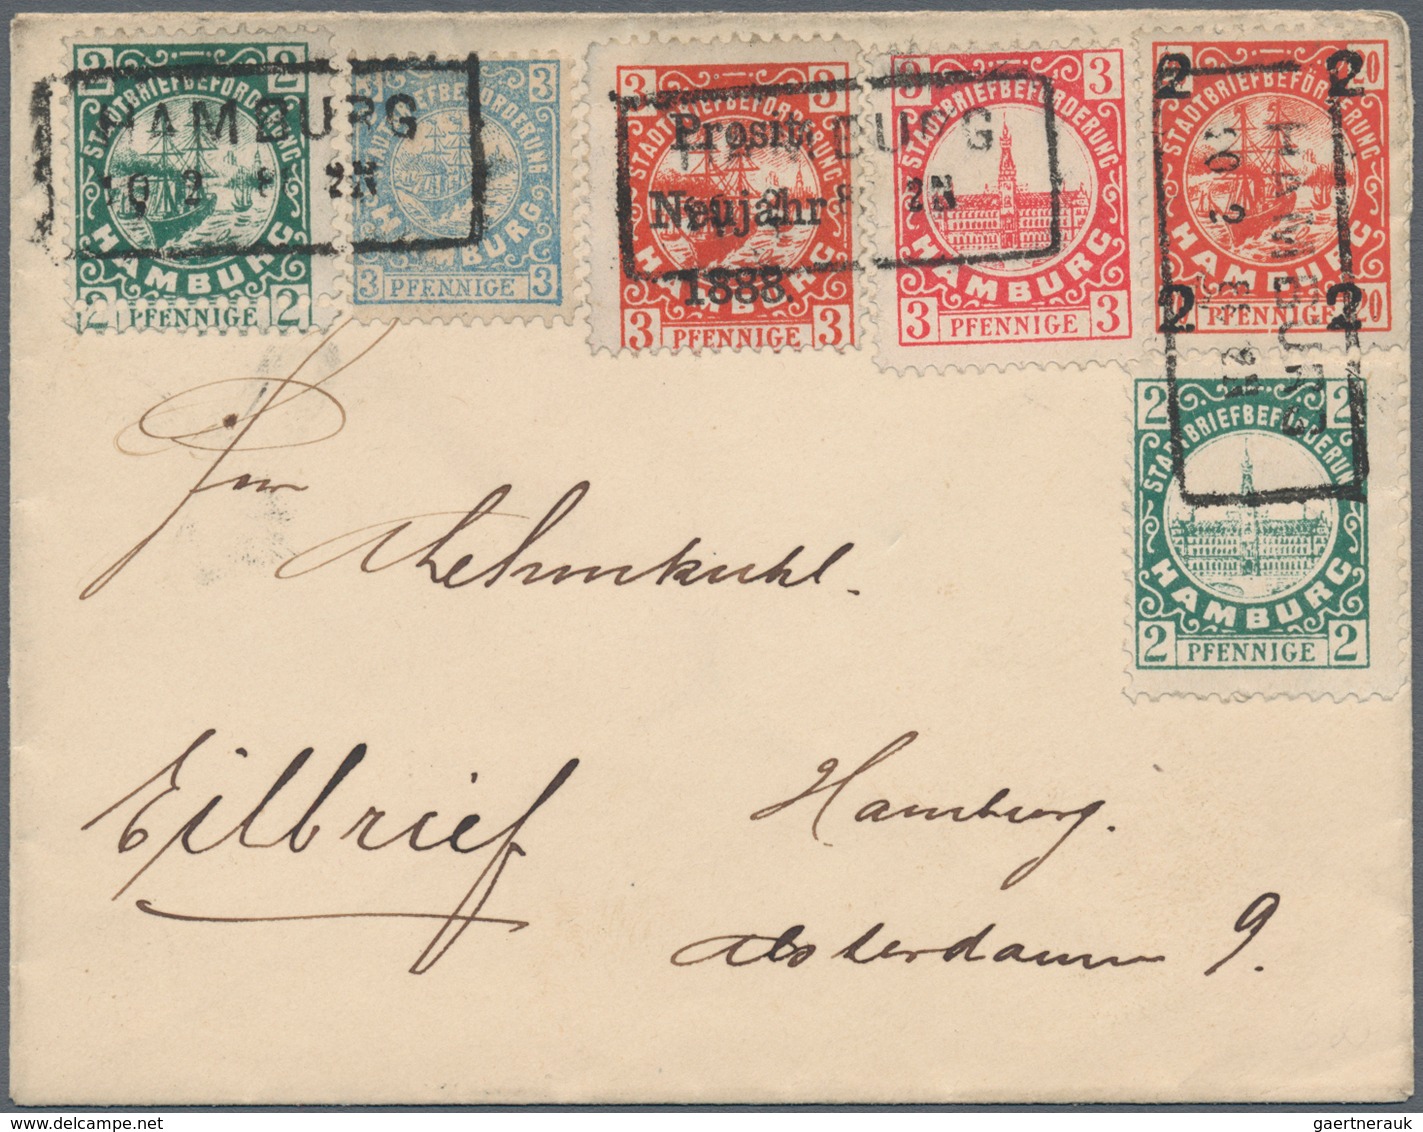 2 2
STADTBRIEFBEFÖRDERUNG
HAMBURG
2 PFENNIGE 2
3
STADTBRIEFBEFÖRDERUNG
HAMBURG
3 PFENNIGE 3
3 3
STADTBRIEFBEFÖRDERUNG
Prosit
Neujahr
1888.
HAMBURG
3 PFENNIGE 3
3 3
STADTBRIEFBEFÖRDERUNG
HAMBURG
3 PFENNIGE 3
2 2 20
STADTBRIEFBEFÖRDERUNG
HAMBURG
2 2
PFENNIGE 20
2 2
STADTBRIEFBEFÖRDERUNG
HAMBURG
2 PFENNIGE 2
HAMBURG
10 2 8 2N
HAMBURG
2N
HAMBURG
10 2 8 2N
Eilbrief
Hamburg.
Alsterdamm 9.
gaertnerauk @ delcampe.net